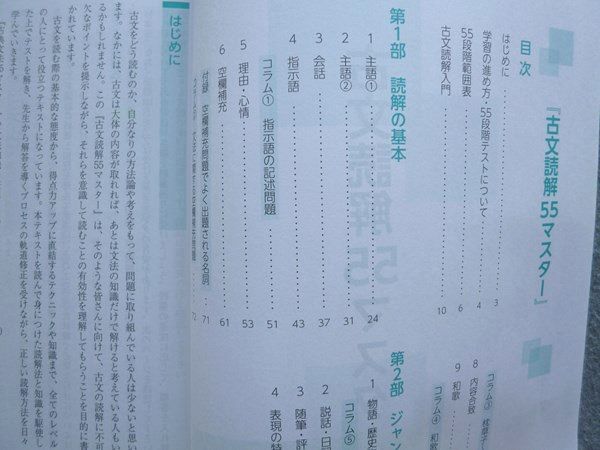 『古文読解55マスター』
目次
はじめに 3
学習の進め方・55段階テストについて 4
55段階範囲表 6
古文読解入門 10
第1部 読解の基本
1 主語① 24
2 主語② 31
3 会話 37
4 指示語 43
コラム① 指示語の記述問題 51
5 理由・心情 53
6 空欄補充 61
付録 空欄補充問題でよく出題される名詞 71
72
コラム③ 枕
8 内容合致
9 和歌
コラム④ 和歌
第2部 ジャン
1 物語・歴史
コラム⑤
2 説話・日
3 随筆・評
4 表現の特
はじめに
古文をどう読むのか、自分なりの方法論や考えをもって、問題に取り組んでいる人は少ないと思い
ます。なかには、古文は大体の内容が取れれば、あとは文法の知識だけで解けると考えている人もい
るかもしれません。この『古文読解55マスター』は、そのような皆さんに向けて、古文の読解に不可
欠なポイントを提示しながら、それらを意識して読むことの有効性を理解してもらうことを目的に書
かれています。
古文を読む際の基本的な態度から、得点力アップに直結するテクニックや知識まで、全てのレベル
の人にとって役立つテキストになっています。本テキストを読んで身につけた読解法と知識を駆使し
た上でテストを解き、先生から解答を導くプロセスの軌道修正を受けながら、正しい読解方法を日々
学んでいきます。